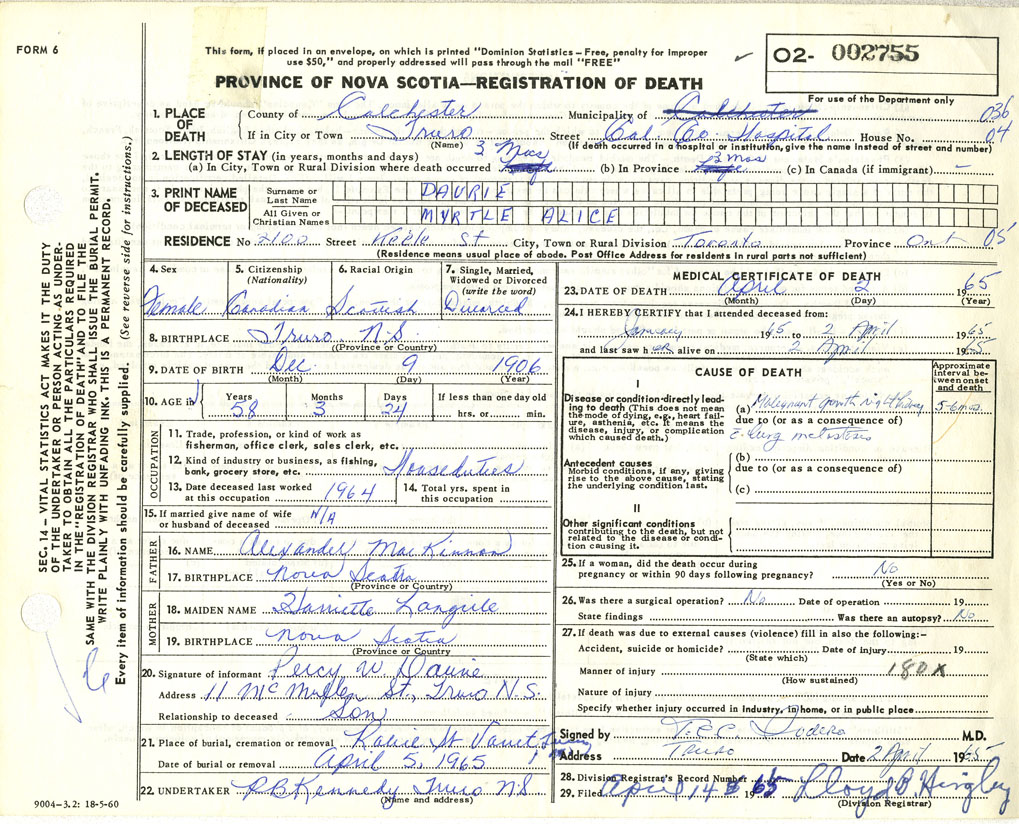 FORM 6
This form, if placed in an envelope, on which is printed "Dominion Statistics – Free, penalty for improper
use $50," and properly addressed will pass through the mail "FREE"
PROVINCE OF NOVA SCOTIA—REGISTRATION OF DEATH
02- 002755
For use of the Department only
1. PLACE OF DEATH
County of Colchester Municipality of Colchester 036
If in City or Town Truro Street Col. Co. Hospital House No. 04
(Name) (If death occurred in a hospital or institution, give the name instead of street and number)
2. LENGTH OF STAY (in years, months and days) 3 Mos
(a) In City, Town or Rural Division where death occurred (b) In Province 3 mos (c) In Canada (if immigrant) –
3. PRINT NAME OF DECEASED
Surname or Last Name DAURIE
All Given or Christian Names MYRTLE ALICE
RESIDENCE No 2100 Street Keele St City, Town or Rural Division Toronto Province Ont 05
(Residence means usual place of abode. Post Office Address for residents in rural parts not sufficient)
4. Sex Female
5. Citizenship (Nationality) Canadian
6. Racial Origin Scotish
7. Single, Married, Widowed or Divorced (write the word) Divorced
8. BIRTHPLACE Truro N.S.
(Province or Country)
9. DATE OF BIRTH Dec. 9 1906
(Month) (Day) (Year)
10. AGE in Years 58 Months 3 Days 24 If less than one day old hrs. or min.
OCCUPATION
11. Trade, profession, or kind of work as fisherman, office clerk, sales clerk, etc.
12. Kind of industry or business, as fishing, bank, grocery store, etc. Houseduties
13. Date deceased last worked at this occupation 1964
14. Total yrs. spent in this occupation
15. If married give name of wife or husband of deceased N/A
FATHER
16. NAME Alexander MacKinnon
17. BIRTHPLACE Nova Scotia
(Province or Country)
MOTHER
18. MAIDEN NAME Harriette Langille
19. BIRTHPLACE Nova Scotia
(Province or Country)
20. Signature of informant Percy W Daurie
Address 11 McMullen St, Truro N.S.
Relationship to deceased Son
21. Place of burial, cremation or removal Robie St Vault Truro
Date of burial or removal April 5, 1965
22. UNDERTAKER P.B. Kennedy Truro NS
(Name and address)
9004–3.2: 18-5-60
MEDICAL CERTIFICATE OF DEATH
23. DATE OF DEATH April 2 1965
(Month) (Day) (Year)
24. I HEREBY CERTIFY that I attended deceased from:
January 1965 to 2 April 1965
and last saw h er alive on 2 April 1965
CAUSE OF DEATH
Approximate interval between onset and death
I
Disease or condition directly leading to death (This does not mean the mode of dying, e.g., heart failure, asthenia, etc. It means the disease, injury, or complication which caused death.)
(a) Malignant growth right kidney 5-6 mos.
due to (or as a consequence of)
c lung metastasis
Antecedent causes
Morbid conditions, if any, giving rise to the above cause, stating the underlying condition last.
(b)
due to (or as a consequence of)
(c)
II
Other significant conditions
contributing to the death, but not related to the disease or condition causing it.
25. If a woman, did the death occur during pregnancy or within 90 days following pregnancy? No
(Yes or No)
26. Was there a surgical operation? No Date of operation 19
State findings Was there an autopsy? No
27. If death was due to external causes (violence) fill in also the following:–
Accident, suicide or homicide? Date of injury 19
(State which)
Manner of injury 180X
(How sustained)
Nature of injury
Specify whether injury occurred in industry, in home, or in public place
Signed by T.C.C. Sodero M.D.
Address Truro Date 2 April 1965
28. Division Registrar's Record Number
29. Filed April 14 1965 Lloyd B. Hingley
(Division Registrar)
SEC. 14 – VITAL STATISTICS ACT MAKES IT THE DUTY
OF THE UNDERTAKER OR PERSON ACTING AS UNDER-
TAKER TO OBTAIN ALL THE PARTICULARS REQUIRED
IN THE "REGISTRATION OF DEATH" AND TO FILE THE
SAME WITH THE DIVISION REGISTRAR WHO SHALL ISSUE THE BURIAL PERMIT.
WRITE PLAINLY WITH UNFADING INK. THIS IS A PERMANENT RECORD.
Every item of information should be carefully supplied. (See reverse side for instructions.)